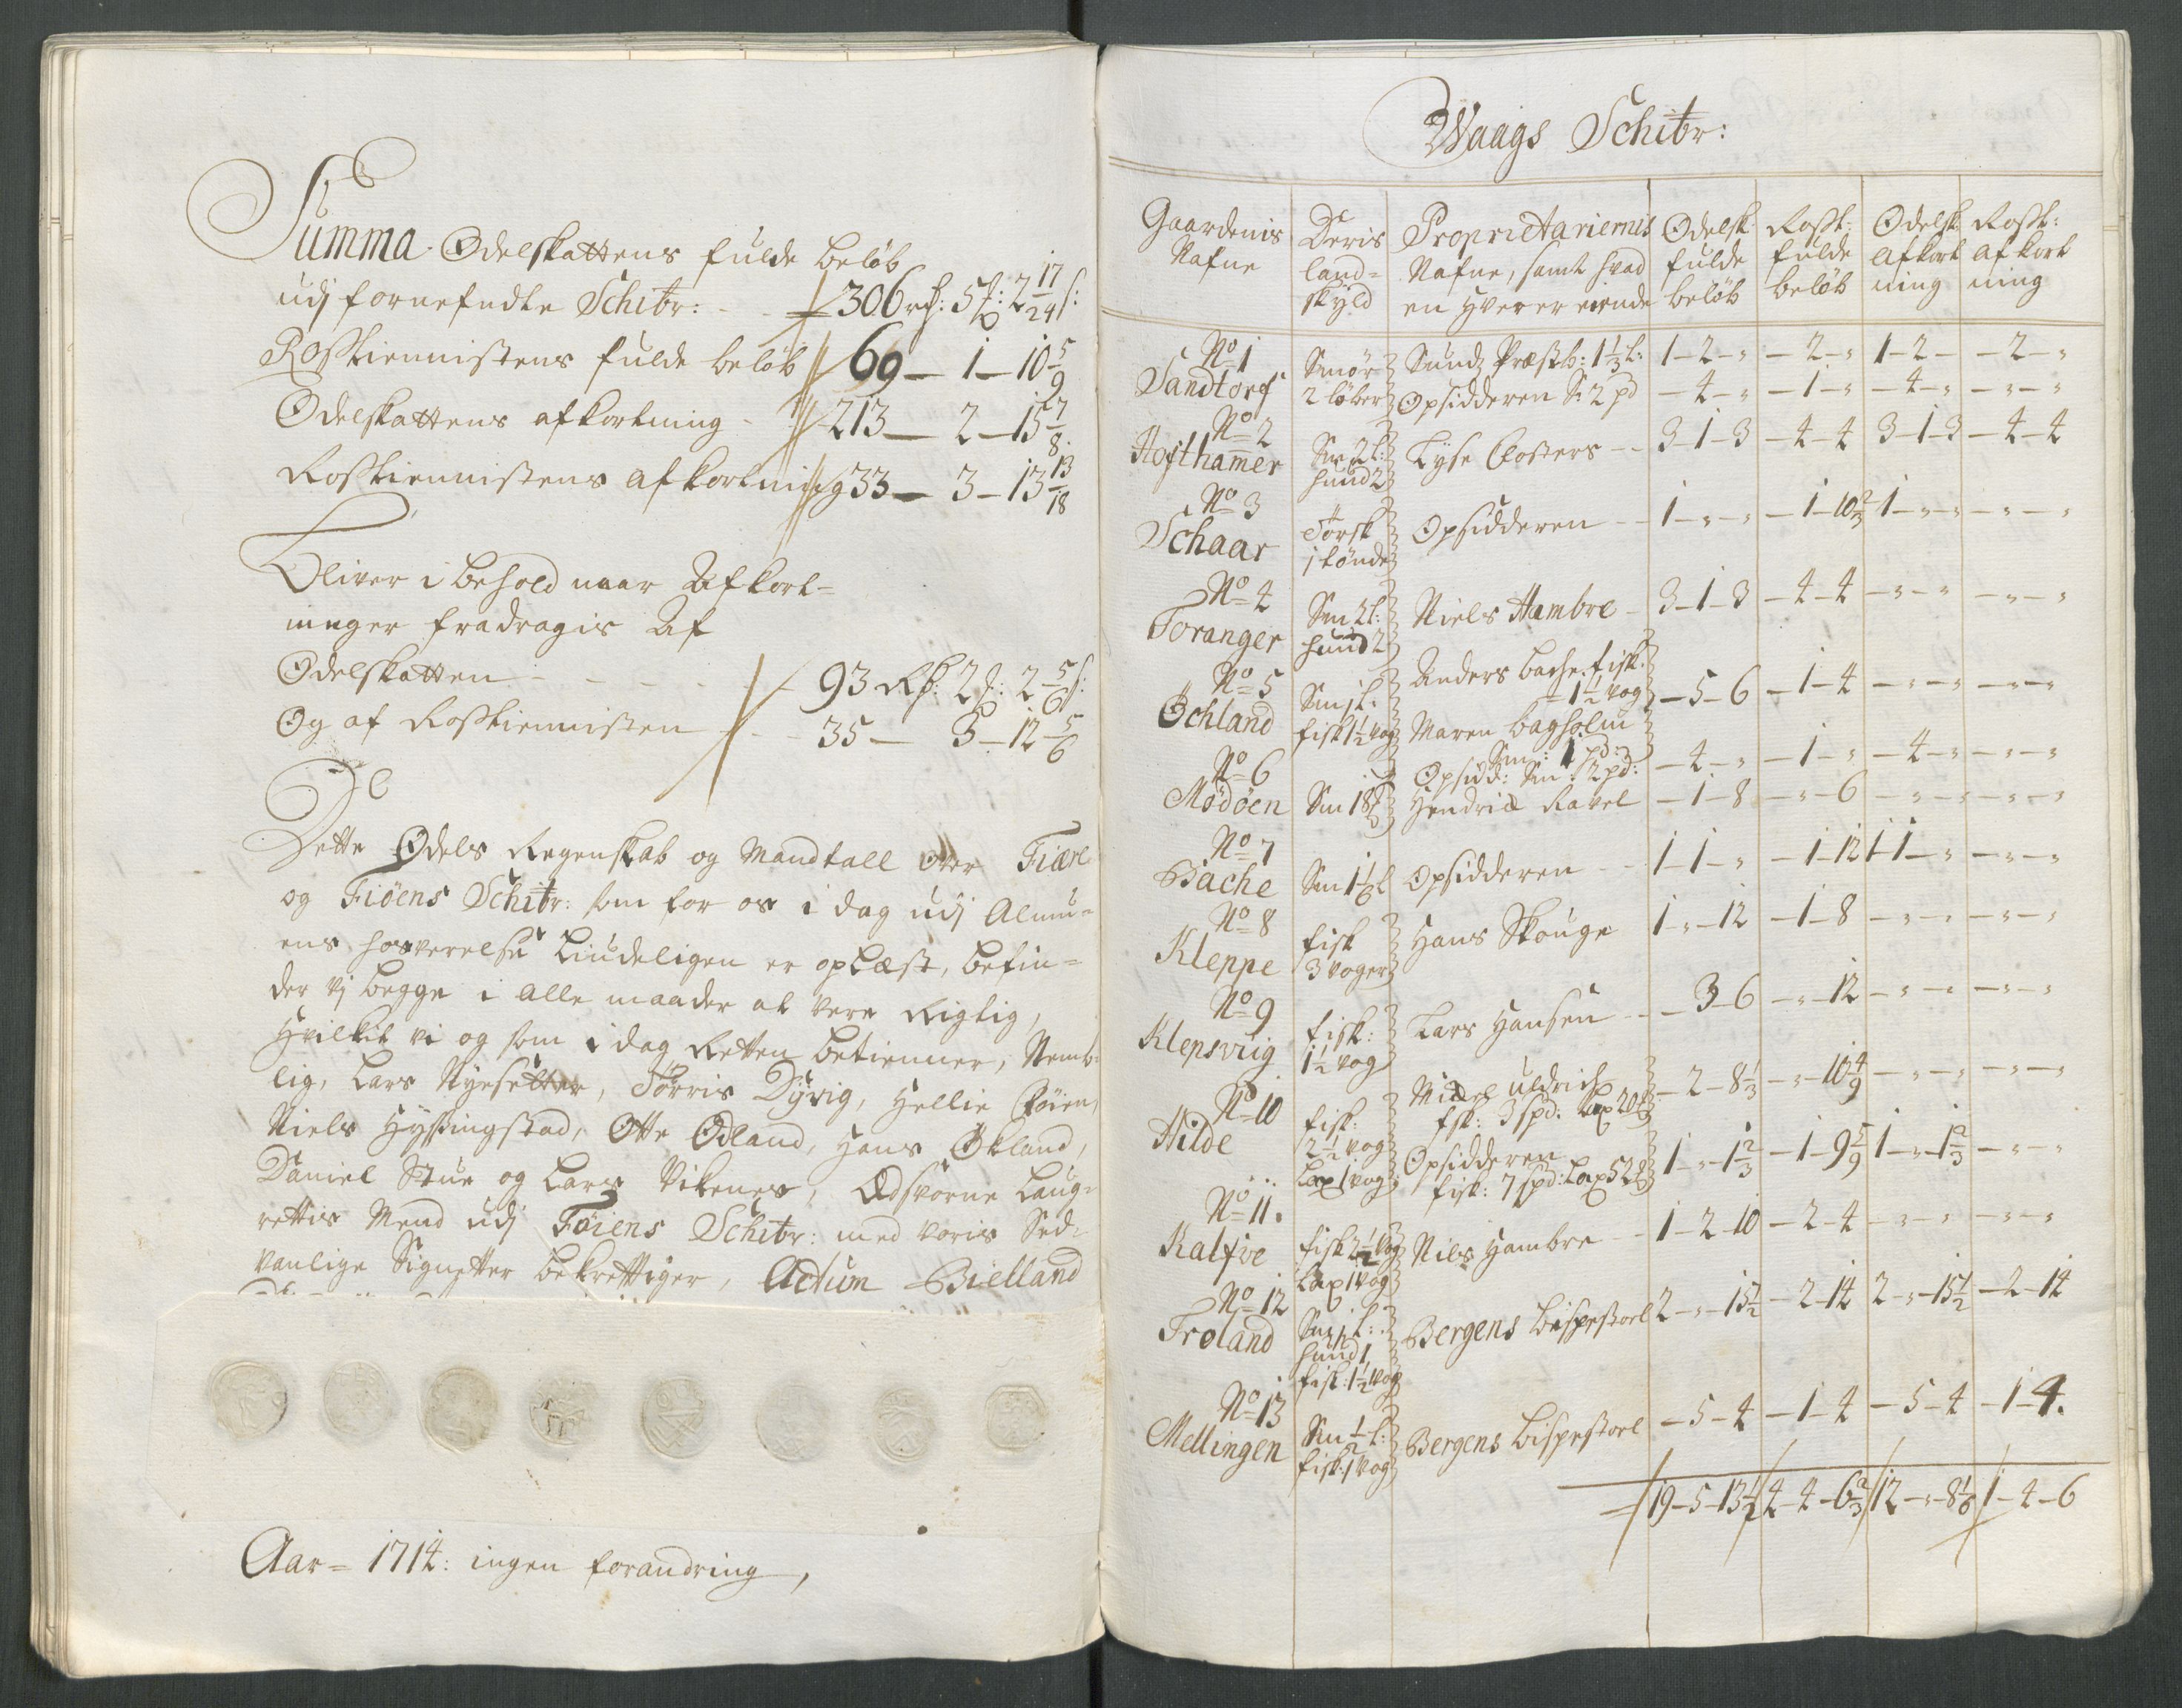 Summa Odelskattens fulde beløb
udj fornefndte Schibr: - - 306 rd: 5 ℔: 2 17/24 s:
Rosstiennistens fulde beløb 69 – 1 – 10 5/9
Odelskattens afkortning - 213 – 2 – 15 7/8
Rosstiennistens afkortning 33 – 3 – 13 13/18
Bliver i behold naar Afkort=
ninger fradragis Af
Odelskatten - - - - 93 Rd: 2 ℔: 2 5/6 s:
Og af Rosstiennisten - - 35 – 3 – 12 5/6
Dette Odels Regenskab og Mandtall over Fiære
og Fiöens Schibr: som for os i dag udj Almu=
ens hosverelse Liudeligen er oplæst, befin=
der vj begge i alle maader at vere Rigtig,
Hvilket vi og som i dag Retten betienner, Nemb=
lig, Lars Nyesetter, Tørris Dyvig, Hellie Föien,
Niels Hyssingstad, Otte Ødland, Hans Økland,
Daniel Stue og Lars Vikenes, Edsvorne Laug=
rettis Mend udj Föiens Schibr: med voris Sed=
vanlige Signetter bekrettiger, Actum Bielland
Aar= 1714: ingen forandring,
Waags Schibr:
Gaardenis Nafne | Deris land= skyld | Proprietariernis Nafne, samt hvad en hver er eiende | Odelsk: fulde beløb | Rosst: fulde beløb | Odelsk: afkort ning | Rosst: afkort ning
No 1 Sandtorf | Smör 2 löber | Sunds Præsteb: 1 1/3 l: | 1–2–" | –2–" | 1–2– | –2–"
Opsidderen S: 2 pd | –4–" | –1–" | –4–" | –"–"
No 2 Hofthamer | Sm 2 l: hund 2 | Lyse Closters - - | 3–1–3 | –4–4 | 3–1–3 | –4–4
No 3 Schaar | Torsk 1 tönde | Opsidderen - - | 1–"–" | –1–10 2/3 | 1–"–" | –"–"
No 4 Toranger | Sm 2 l: hund 2 | Niels Hambre - | 3–1–3 | –4–4 | –"–" | –"–"
No 5 Öchland | Sm 1 l: fisk 1 1/2 vog | Anders bache fisk: 1 1/2 vog | –5–6 | –1–4 | –"–" | –"–"
Maren bagholm Sm: 1 pd:
Opsidd: Sm: 2 pd: | –4–" | –1–" | –4–" | –"–"
No 6 Mödöen | Sm 18 ℔ | Hendrik Ravel | –1–8 | –"–6 | –"–" | –"–"
No 7 Bache | Sm 1 1/6 l | Opsidderen - - | 1–1–" | –1–12 | 1–1–" | –"–"
No 8 Kleppe | fisk 3 voger | Hans Skouge | 1–"–12 | –1–8 | –"–" | –"–"
No 9 Klepsviig | fisk: 1 1/2 vog | Lars Hansen - - | –3–6 | –"–12 | –"–" | –"–"
No 10 Hilde | fisk: 2 1/2 vog Lax 1 vog | Mickel Uldrich fsk: 3 spd: Lax 20 ℔ | –2–8 1/3 | –"–10 4/9 | –"–" | –"–"
Opsidderen fisk: 7 spd: Lax 52 ℔ | 1–"–1 2/3 | –1–9 5/9 | 1–"–1 2/3 | –"–"
No 11. Kalfve | fisk 2 1/2 vog Lax 1 vog | Niels Hambre - - | 1–2–10 | –2–4 | –"–" | –"–"
No 12 Froland | Sm 1 l: hund 1 fisk: 1 1/2 vog | Bergens bispestoel | 2–"–15 1/2 | –2–14 | 2–"–15 1/2 | –2–14
No 13 Mellingen | Sm 1/2 l: fisk: 1 vog | Bergens bispestoel | –5–4 | –1–4 | –5–4 | –1–4.
19–5–13 1/2 | 4–4–6 2/3 | 12–"–8 1/6 | 1–4–6